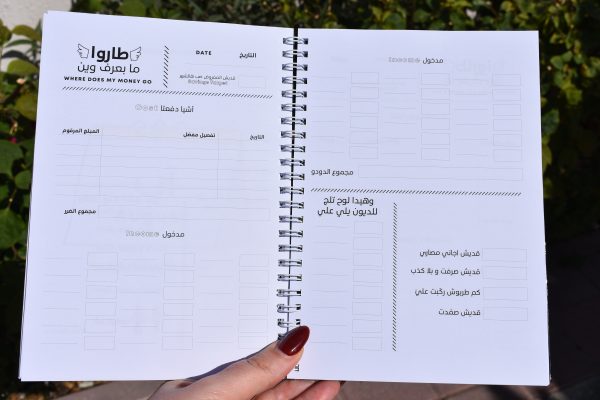 طاروا
ما بعرف وين
WHERE DOES MY MONEY GO
DATE التاريخ
قديش المفروض معي كاشتير
أشيا دفعتا Cost
التاريخ تفصيل مفصل المبلغ المرقوم
مجموع الضرر
مدخول Income
مدخول Income
مجموع الدودو
وهيدا لوح تلج
للديون يلي علي
قديش اجاني مصاري
قديش صرفت و بلا كذب
كم طربوش ركبت علي
قديش صفدت